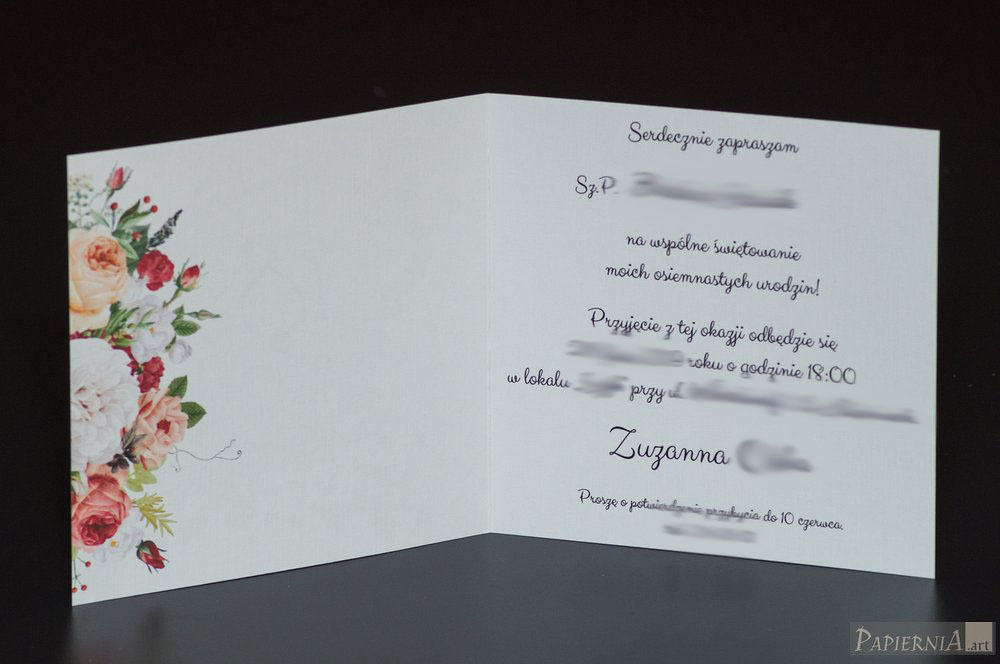 Serdecznie zapraszam
Sz.P.
na wspólne świętowanie
moich osiemnastych urodzin!
Przyjęcie z tej okazji odbędzie się
roku o godzinie 18:00
w lokalu przy ul
Zuzanna
Proszę o potwierdzenie przybycia do 10 czerwca.
PAPIERNIA.art